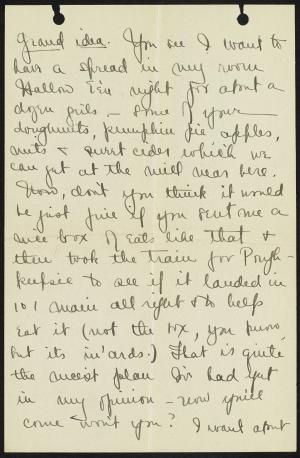 Grand idea. You see I want to
have a spread in my room
Hallow E'en night for about a
dozen girls, - some of your
doughnuts, pumpkin pie apples,
nuts & sweet cider which we
can get at the mill near here.
Now, don't you think it would
be just fine if you sent me a
nice box of eats like that &
then took the train for Pough-
keepsie to see if it landed in
101 Main all right & to help
eat it (not the box, you know,
but its in'ards.) That is quite
the nicest plan I've had yet
in my opinion - Now you'll
come won't you? I want about